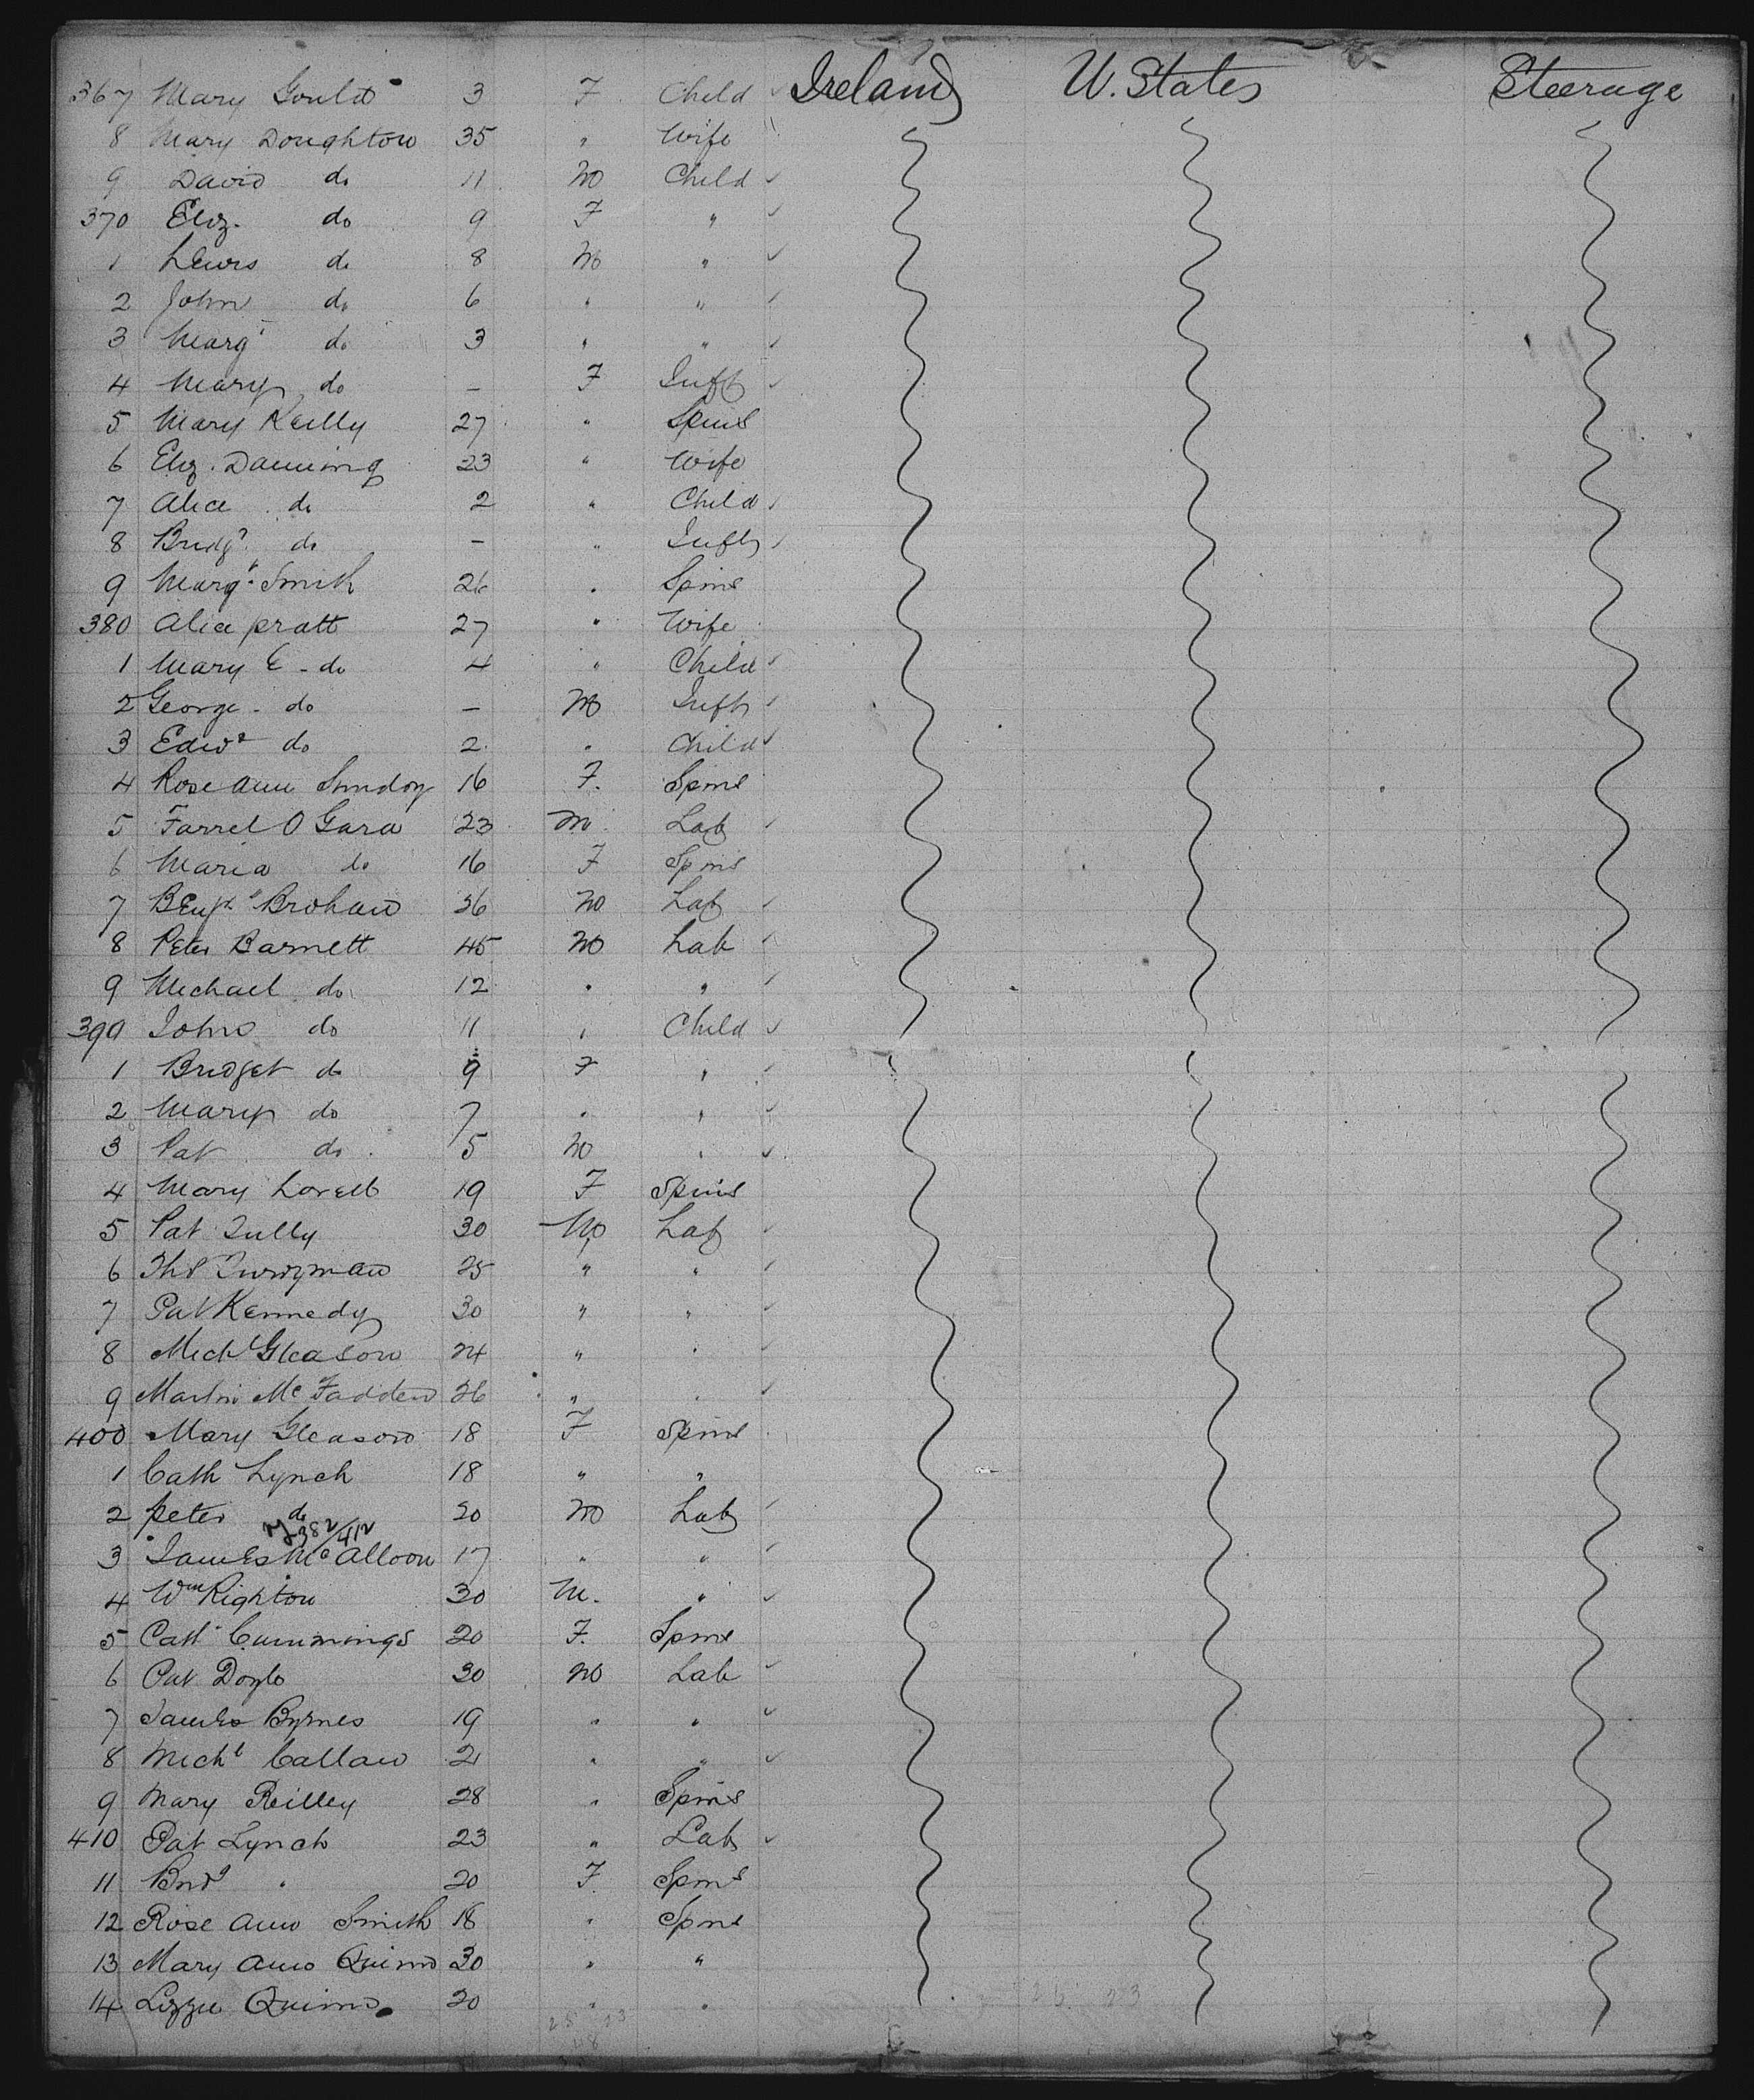 367 Mary Gould 3 F Child ✓ Ireland U. States Steerage
8 Mary Doughton 35 " Wife
9 David do 11 M Child ✓
370 Eliz. do 9 F " ✓
1 Lewis do 8 M " ✓
2 John do 6 " " ✓
3 Margt do 3 " " ✓
4 Mary do – F Inft ✓
5 Mary Reilly 27 " Spins
6 Eliz. 23 " Wife
7 Alice do 2 " Child ✓
8 Bridgt do – " Inft ✓
9 Margt Smith 26 " Spins
380 Alice Pratt 27 " Wife
1 Mary E - do 4 " Child ✓
2 George - do – M Inft ✓
3 Edwd do 2 " Child ✓
4 Rose Ann 16 F. Spins
5 Farrel O Gara 23 M Lab ✓
6 Maria do 16 F Spins
7 Benjn Brohan 36 M Lab ✓
8 Peter Barnett 45 M Lab ✓
9 Michael do 12 " " ✓
390 John do 11 " Child ✓
1 Bridget do 9 F " ✓
2 Mary do 7 " " ✓
3 Pat do 5 M " ✓
4 Mary Lovell 19 F Spins
5 Pat Tully 30 M Lab ✓
6 Thos 25 " " ✓
7 Pat Kennedy 30 " " ✓
8 Michl Gleason 24 " " ✓
9 Martin Mc Fadden 26 " " ✓
400 Mary Gleason 18 F Spins
1 Cath Lynch 18 " "
2 Peter do 20 M Lab ✓
382/412
3 James Mc Alloon 17 " " ✓
4 Wm Righton 30 M. " ✓
5 Cath Cummings 20 F. Spins
6 Pat Doyle 30 M Lab ✓
7 James Byrnes 19 " " ✓
8 Michl Callan 21 " " ✓
9 Mary Reilley 28 " Spins
410 Pat Lynch 23 " Lab ✓
11 Bridg " 20 F. Spins
12 Rose Ann Smith 18 " Spins
13 Mary Ann Quinn 30 " "
14 Lizzie Quinn 20 " "
25 23
48